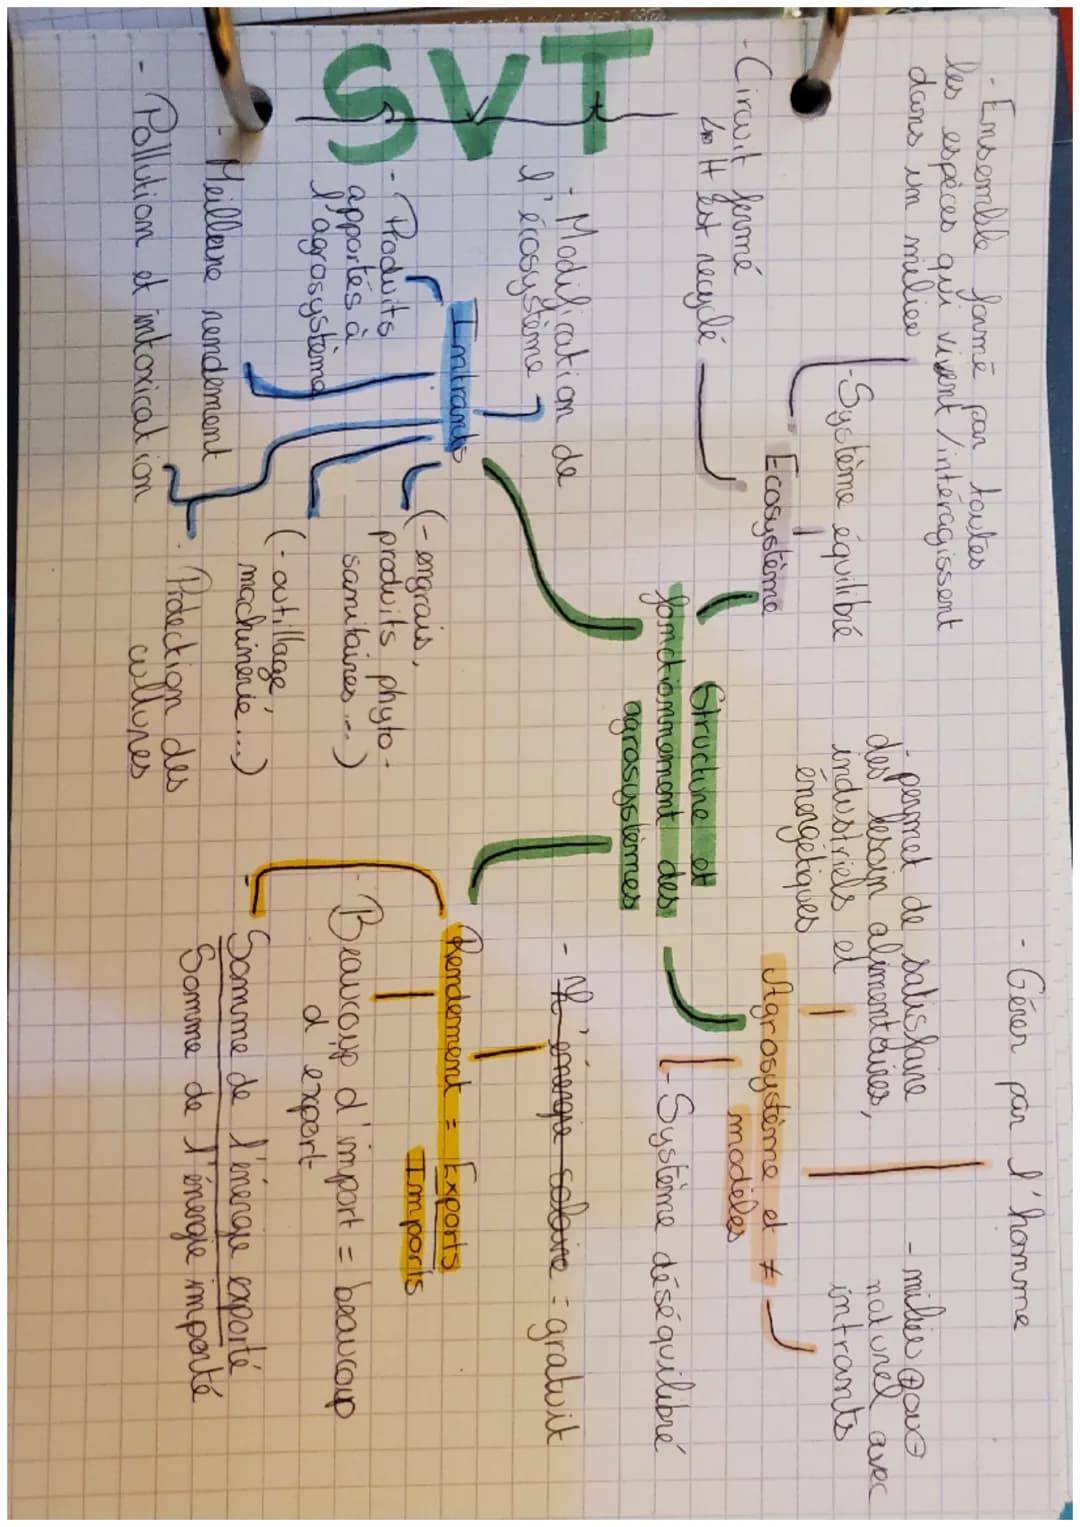 SVT
- Ensemble formé par toutes
les espèces qui vivent/intéragissent
dans un milieu
- Système équilibré
- Circuit fermé
↳ H est recyclé
Ecosystème
- Gérer par l'homme
- permet de satisfaire
des besoin alimentaires,
industriels et
énergétiques
- milieu ⊕ ou ⊖
naturel avec
intrants
Agrosystème et ≠
modèles
- Système déséquilibré
Structure et
fonctionnement des
agrosystèmes
- Modification de
l'écosystème
Intrants
- Produits
apportés à
l'agrosystème
(- engrais,
produits phyto-
sanitaires ...)
(- outillage,
machinerie ...)
- Meilleure rendement
- Pollution et intoxication
- Protection des
cultures
- L'énergie solaire = gratuit
Rendement = Exports
Imports
- Beaucoup d'import = beaucoup
d'export
- Somme de l'énergie exporté
Somme de l'énergie importé